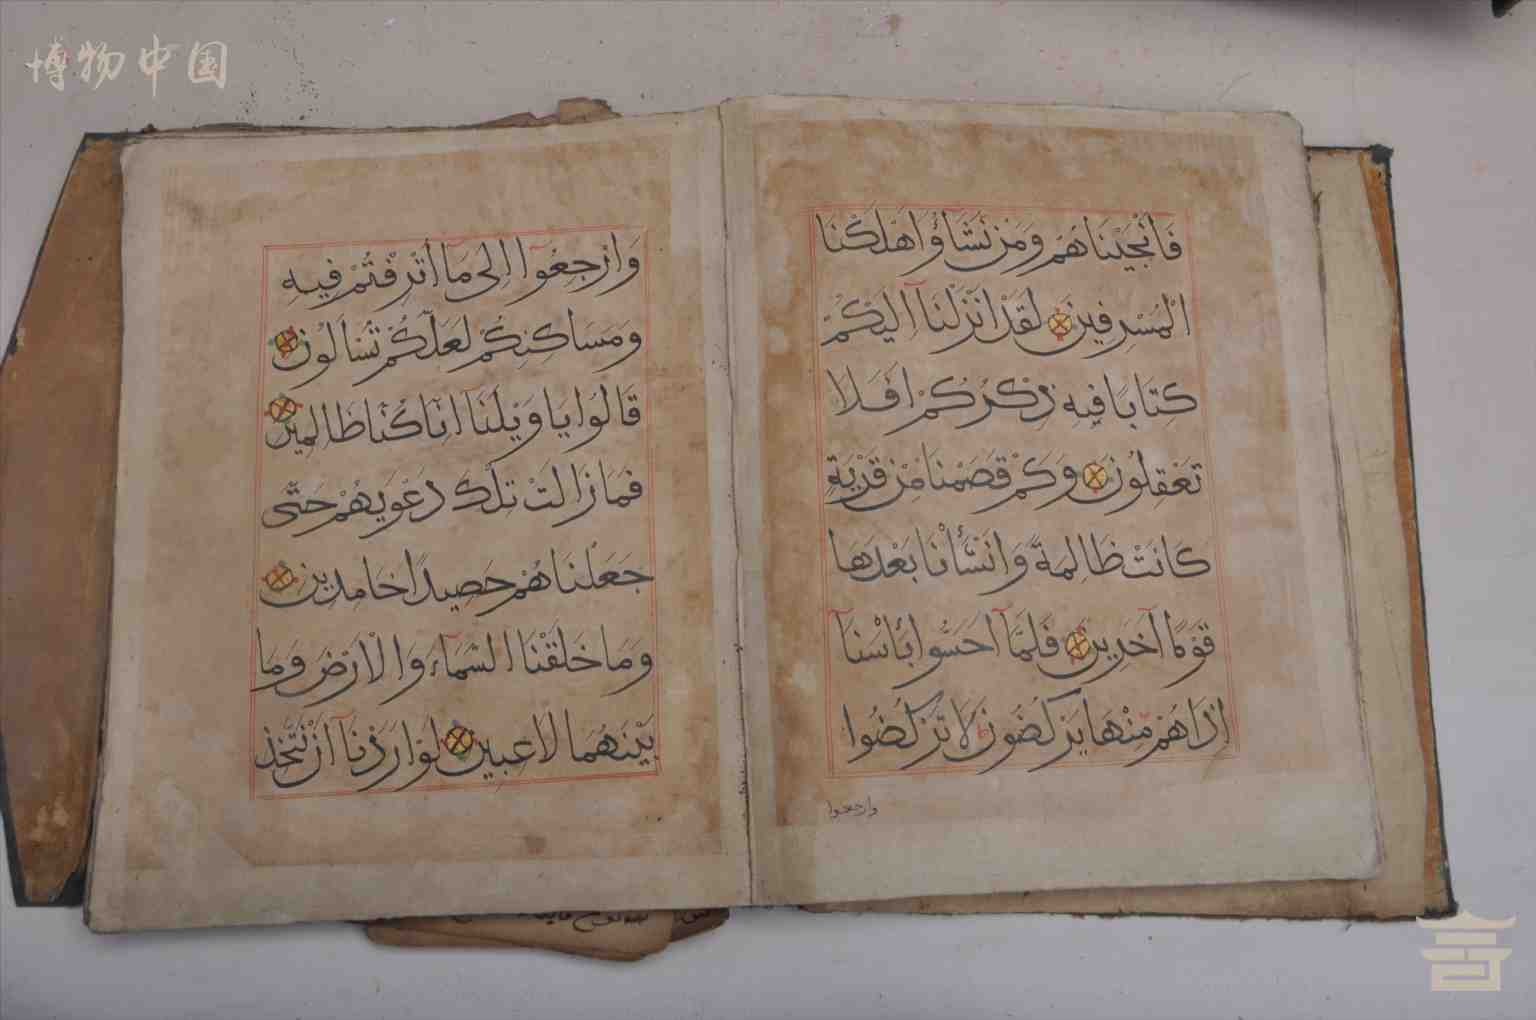 博物中国
فَاَنْجَيْنَاهُمْ وَمَنْ نَشَآؤُا اَهْلَكْنَا
الْمُسْرِفِينَ لَقَدْ اَنْزَلْنَآ اِلَيْكُمْ
كِتَابًا فِيهِ ذِكْرُكُمْ اَفَلَا
تَعْقِلُونَ وَكَمْ قَصَمْنَا مِنْ قَرْيَةٍ
كَانَتْ ظَالِمَةً وَاَنْشَأْنَا بَعْدَهَا
قَوْمًا آخَرِينَ فَلَمَّآ اَحَسُّوا بَأْسَنَآ
اِذَا هُمْ مِنْهَا يَرْكُضُونَ لَا تَرْكُضُوا
وارجعوا
وَارْجِعُوٓا اِلٰى مَآ اُتْرِفْتُمْ فِيهِ
وَمَسَاكِنِكُمْ لَعَلَّكُمْ تُسْاَلُونَ
قَالُوا يَا وَيْلَنَآ اِنَّا كُنَّا ظَالِمِينَ
فَمَا زَالَتْ تِلْكَ دَعْوَيهُمْ حَتّٰى
جَعَلْنَاهُمْ حَصِيدًا خَامِدِينَ
وَمَا خَلَقْنَا السَّمَآءَ وَالْاَرْضَ وَمَا
بَيْنَهُمَا لَاعِبِينَ لَوْ اَرَدْنَآ اَنْ نَتَّخِذَ